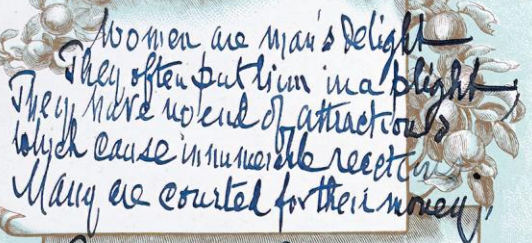 Women are man's delight
They often put him in a plight,
They have no end of attractions
Which cause innumerable reactions.
Many are courted for their money,